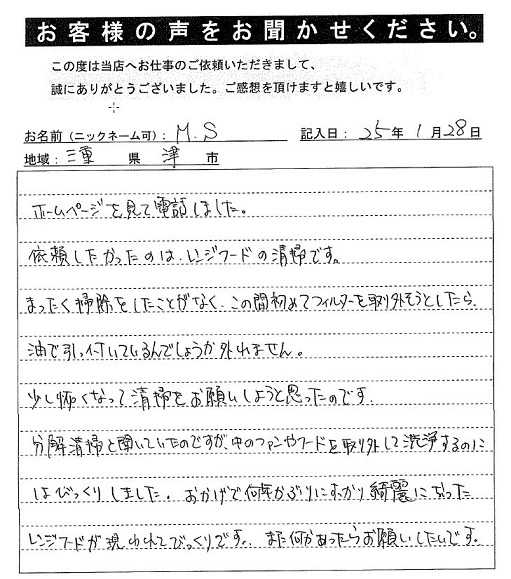 お客様の声をお聞かせください。
この度は当店へお仕事のご依頼いただきまして、
誠にありがとうございました。ご感想を頂けますと嬉しいです。
お名前（ニックネーム可）： M.S 記入日： 25年 1月 28日
地域： 三重 県 津 市
ホームページを見て電話しました。
依頼したかったのは、レンジフードの清掃です。
まったく掃除をしたことがなく、この間初めてフィルターを取り外そうとしたら、
油で引っ付いているんでしょうか外れません。
少し怖くなって清掃をお願いしようと思ったのです。
分解清掃と聞いていたのですが、中のファンやフードを取り外して洗浄するのに
はびっくりしました。おかげで何年かぶりにすっかり綺麗になった
レンジフードが現われてびっくりです。また何かあったらお願いしたいです。